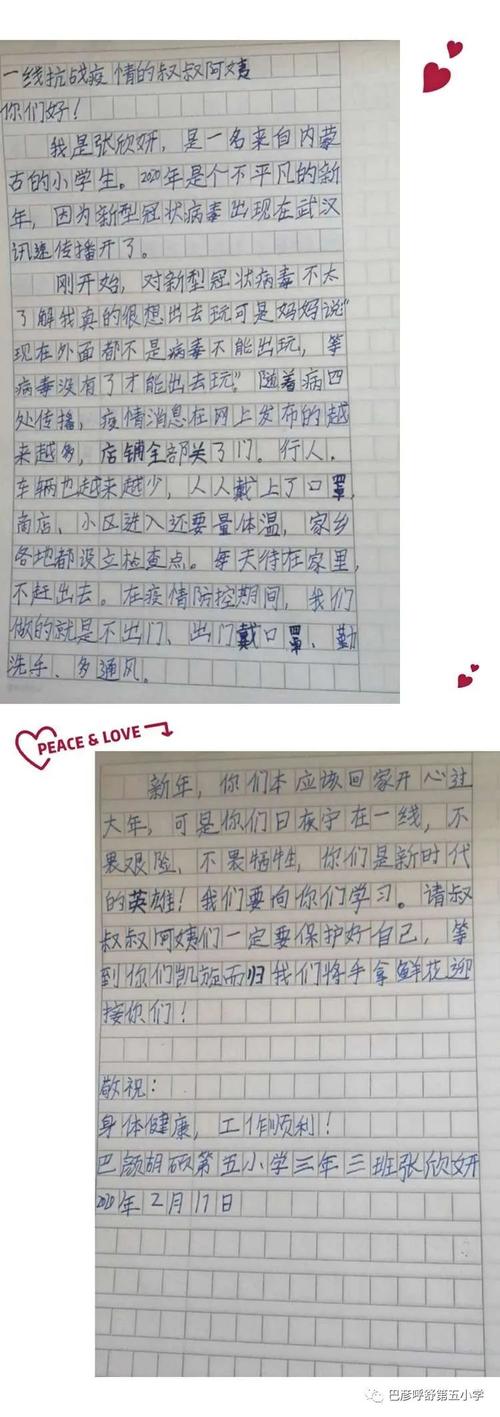 一线抗战疫情的叔叔阿姨
你们好！
我是张欣妍，是一名来自内蒙
古的小学生。2020年是个不平凡的新
年，因为新型冠状病毒出现在武汉
讯速传播开了。
刚开始，对新型冠状病毒不太
了解我真的很想出去玩可是妈妈说“
现在外面都不是病毒不能出玩，等
病毒没有了才能出去玩”。随着病四
处传播，疫情消息在网上发布的越
来越多，店铺全部关了门。行人．
车辆也越来越少，人人戴上了口罩，
商店、小区进入还要量体温，家乡
各地都设立检查点。每天待在家里，
不赶出去。在疫情防控期间，我们
做的就是不出门、出门戴口罩、勤
洗手、多通风。
PEACE & LOVE
新年，你们本应该回家开心过
大年，可是你们日夜守在一线，不
畏艰险，不畏牺牲，你们是新时代
的英雄！我们要向你们学习。请叔
叔叔阿姨们一定要保护好自己，等
到你们凯旋而归我们将手拿鲜花迎
接你们！
敬祝：
身体健康，工作顺利！
巴颜胡硕第五小学三年三班张欣妍
2020年2月17日
巴彦呼舒第五小学